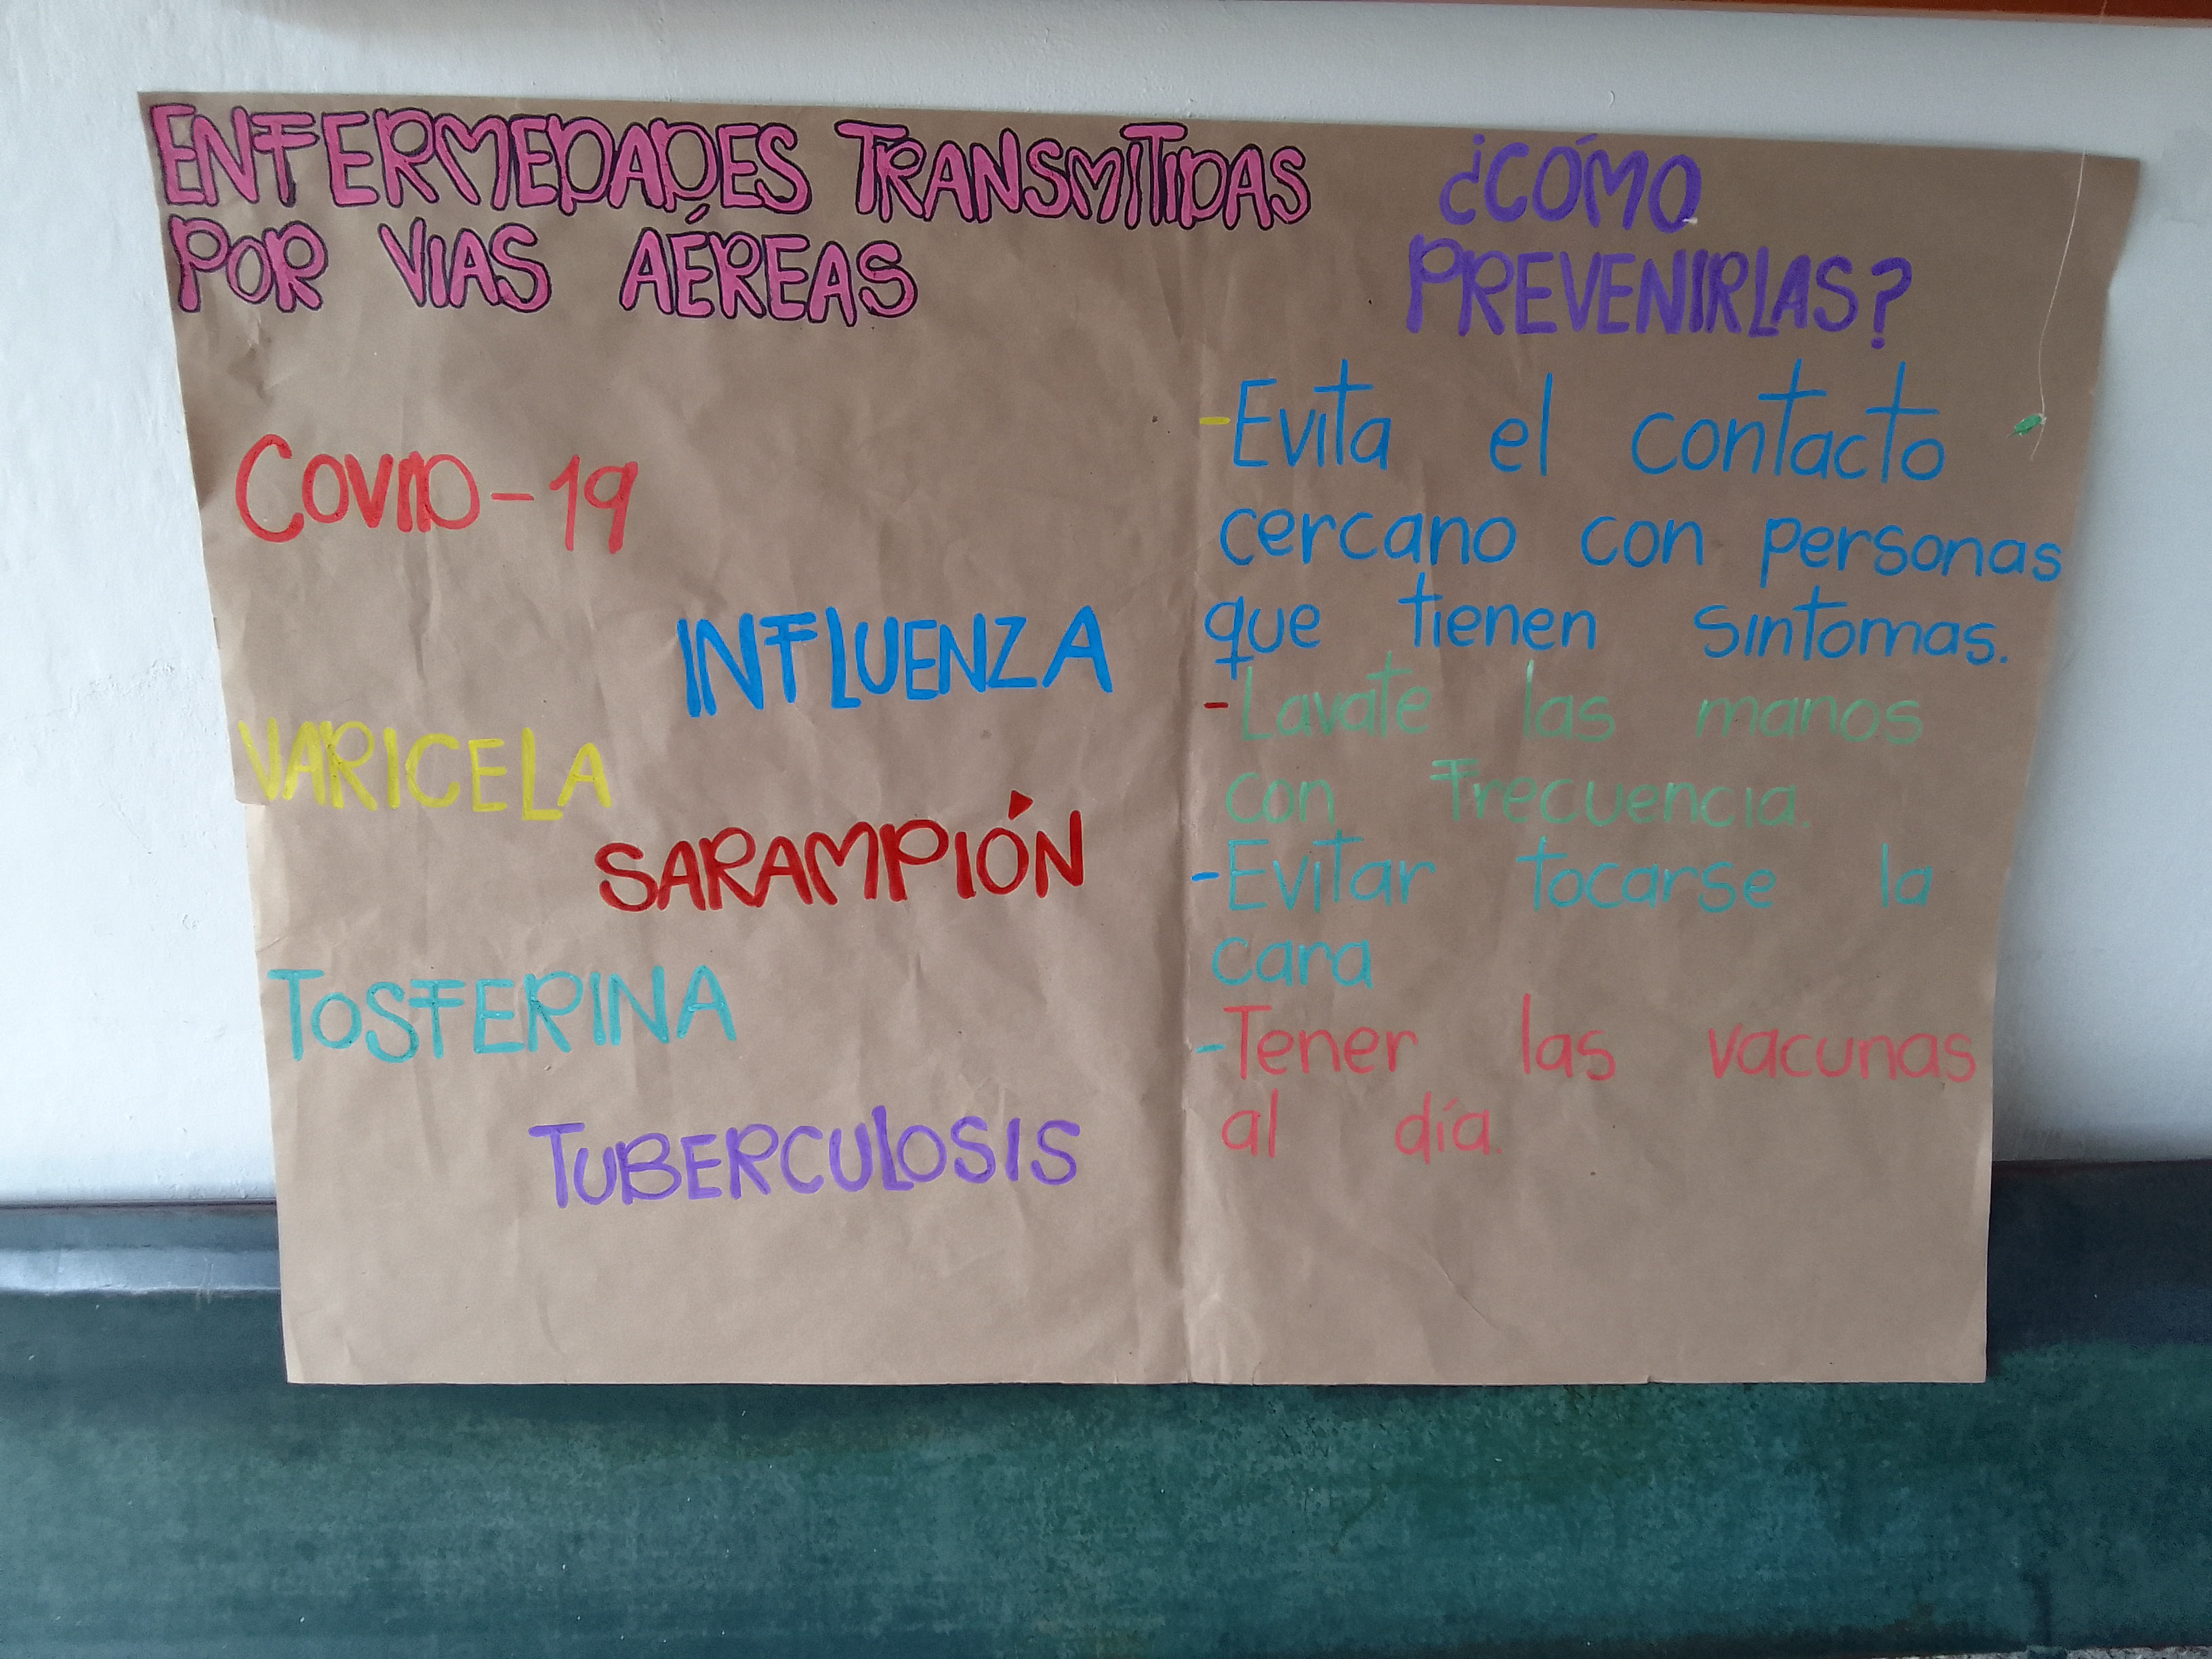 ENFERMEDADES TRANSMITIDAS
POR VIAS AÉREAS
COVID-19
INFLUENZA
VARICELA
SARAMPIÓN
TOSFERINA
TUBERCULOSIS
¿CÓMO
PREVENIRLAS?
-Evita el contacto
cercano con personas
que tienen sintomas.
-Lavate las manos
con frecuencia.
-Evitar tocarse la
cara
-Tener las vacunas
al día.